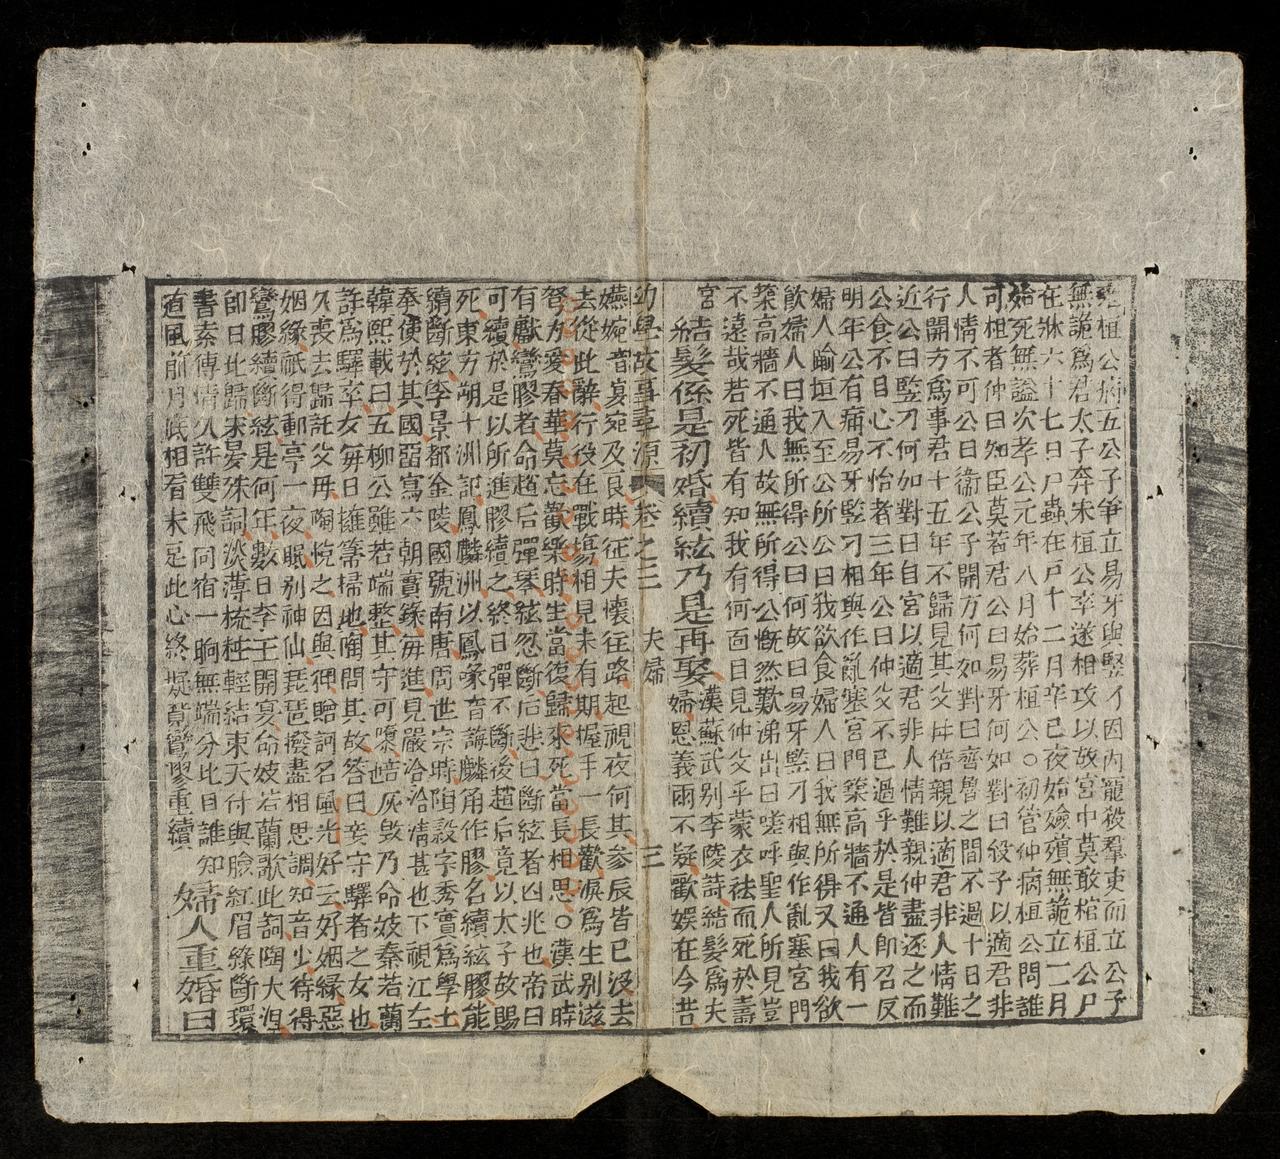 桓公病五公子爭立易牙與竪刁因內寵殺羣吏而立公子
無詭爲君太子奔宋桓公卒遂相攻以故宮中莫敢棺桓公尸
在牀六十七日尸蟲在戸十二月辛巳夜始殮殯無詭立二月
始死無謚次孝公元年八月始葬桓公〇初管仲病桓公問誰
可相者仲曰知臣莫若君公曰易牙何如對曰殺子以適君非
人情不可公曰衞公子開方何如對曰齊魯之間不過十日之
行開方爲事君十五年不歸見其父母倍親以適君非人情難
近公曰竪刁何如對曰自宮以適君非人情難親仲盡逐之而
公食不目心不怡者三年公曰仲父不已過乎於是皆即召反
明年公有病易牙竪刁相與作亂塞宮門築高牆不通人有一
婦人踰垣入至公所公曰我欲食婦人曰我無所得又曰我欲
飮婦人曰我無所得公曰何故曰易牙竪刁相與作亂塞宮門
築高牆不通人故無所得公慨然歎涕出曰嗟呼聖人所見豈
不遠哉若死皆有知我有何面目見仲父乎蒙衣袪而死於壽
宮
結髮係是初婚續絃乃是再娶
漢蘇武别李陵詩結髮爲夫
婦恩義兩不疑歡娛在今昔
幼學故事尋源 卷之三 夫婦 三
嬿婉音宴宛及良時征夫懷往路起視夜何其參辰皆已沒去
去從此辭行役在戰塲相見未有期握手一長歎淚爲生别滋
努力愛春華莫忘歡樂時生當復歸來死當長相思〇漢武時
有獻鸞膠者命趙后彈琴絃忽斷后悲曰斷絃者凶兆也帝曰
可續於是以所進膠續之終日彈不斷後趙后竟以太子故賜
死東方朔十洲記鳳麟洲以鳳喙音誨麟角作膠名續絃膠能
續斷絃李景都金陵國號南唐周世宗時陶穀字秀實爲學士
奉使於其國寫六朝實錄每進見嚴冾淸甚也下視江左
韓熙載曰五柳公雖若端整其守可隳音灰毁乃命妓秦若蘭
詐爲驛卒女每日擁箒掃地陶問其故答曰妾守驛者之女也
久喪去歸託父母陶悅之因與狎贈詞名風光好云好姻緣惡
姻緣祗得郵亭一夜眠别神仙琵琶撥盡相思調知音少待得
鸞膠續斷絃是何年數日李王開宴命妓若蘭歌此詞陶大沮
即日比歸宋晏殊詞淡薄梳粧輕結束天付與臉紅眉綠斷環
書索傳情久許雙飛同宿一晌無端分比目誰知
道風前月底相看未足此心終疑覓鸞膠重續
婦人重婚曰